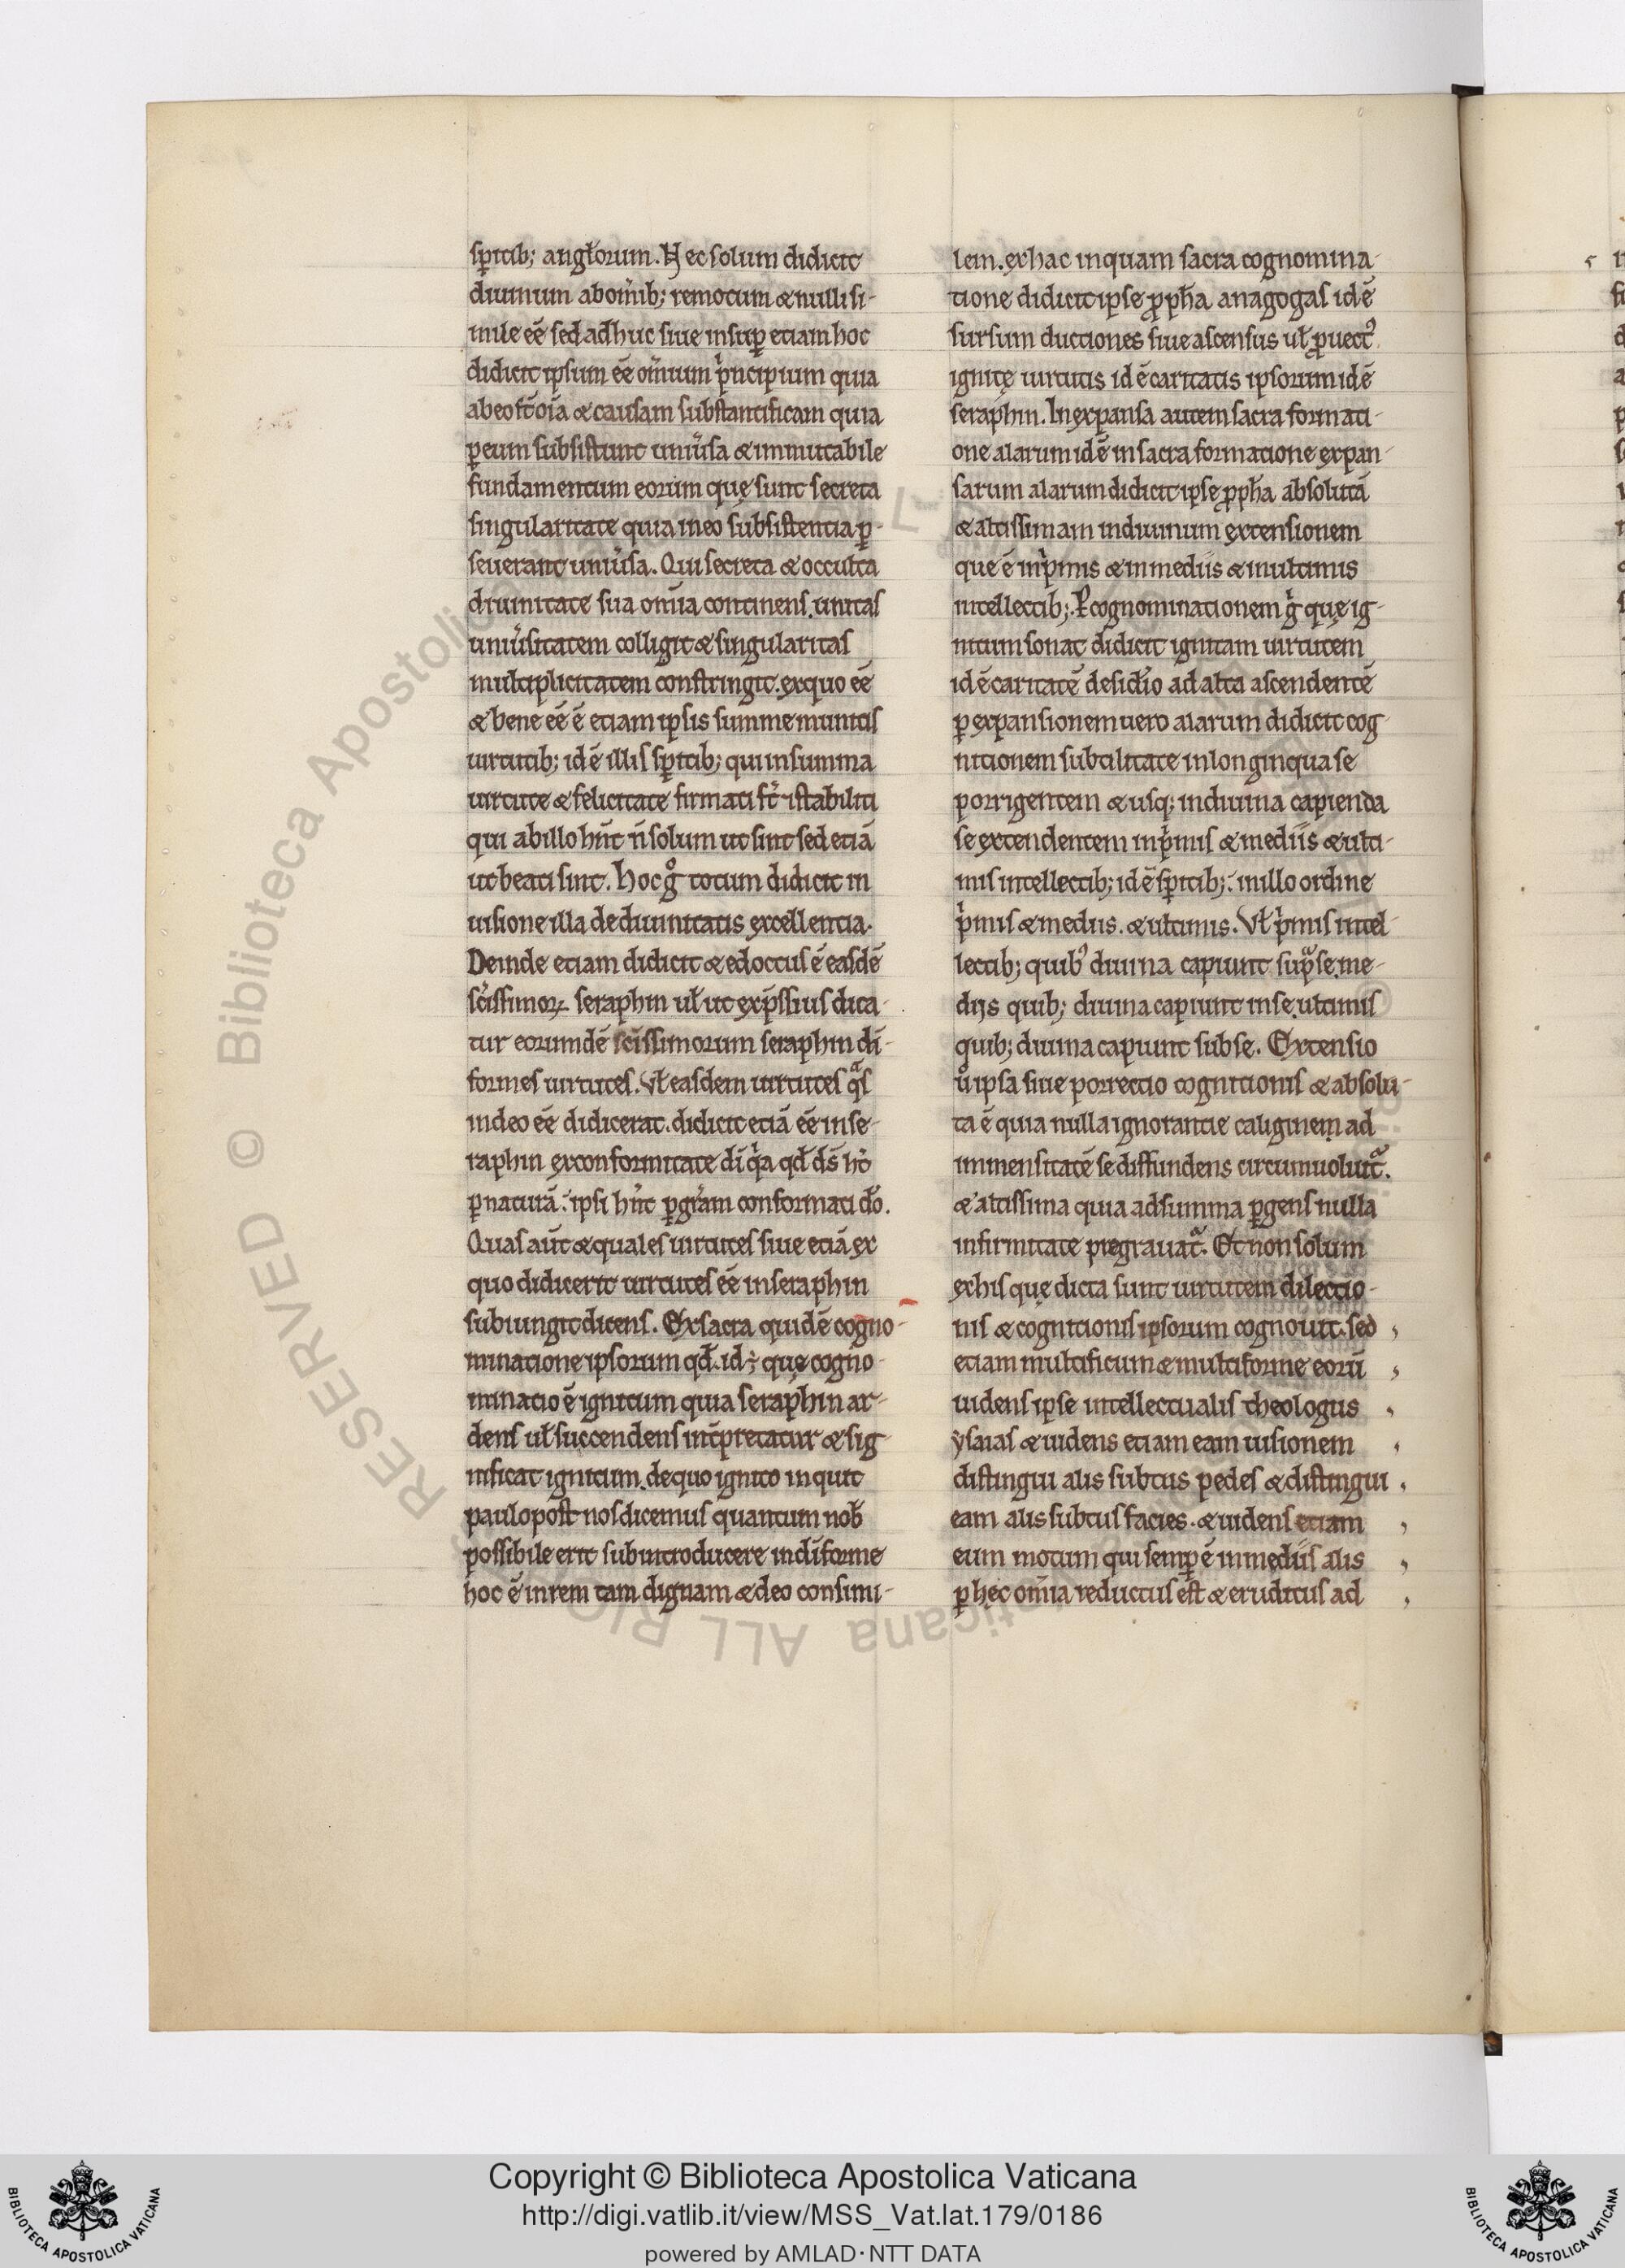 sp̄itib; angl̄orum. Hec solum didicit
diuinum abom̄ib; remotum & nulli si-
mile eē sed adhuc siue insup̱ etiam hoc
didicit ipsum eē om̄ium pͥncipium quia
abeo s̄t oīa & causam substantificam quia
p̱eum subsistunt uniuͥsa & immutabile
fundamentum eorum quę sunt secreta
singularitate quia ineo subsistentia p̱-
seuerant uniuͥsa. Qui secreta & occulta
diuinitate sua om̄ia continens. unitas
uniuͥsitatem colligit & singularitas
multiplicitatem constringit. ex quo eē
& bene eē ē etiam ipsis summe munitis
uirtutib; idē illis sp̄itib; qui insumma
uirtute & felicitate firmati s̄t ⁊stabiliti
qui abillo hn̄t n̄ solum ut sint sed etiā
ut beati sint. Hoc gͦ totum didicit in
uisione illa de diuinitatis excellentia.
Deinde etiam didicit & edoctus ē easdē
sc̄issimoꝝ seraphin ul̄ ut exp̄ssius dica-
tur eorumdē sc̄issimorum seraphin di-
formes uirtutes. Vl̄ easdem uirtutes qͣs
indeo eē didicerat. didicit etiā eē inse-
raphin exconformitate dī qͥa qd̄ ds̄ ht̄
p̱naturā. ipsi hn̄t p̱ gr̄am conformati dō.
Quas aut̄ & quales uirtutes siue etiā ex
quo didicerit uirtutes eē inseraphin
subiungit dicens. Ex sacra quidē cogno-
minatione ipsorum qd̄. id ÷ quę cogno-
minatio ē ignitum quia seraphin ar-
dens ul̄ succendens int̄pretatur & sig-
nificat ignitum. dequo ignito inquit
paulo post nos dicemus quantum nob̄
possibile erit subintroducere indiforme
hoc ē inrem tam dignam & deo consimi-
lem. ex hac inquam sacra cognomina-
tione didicit ipse ꝓph̄a anagogas idē
sursum ductiones siue ascensus ul̄ ꝓuectꝰ
ignitę uirtutis idē caritatis ipsorum idē
seraphin. In expansa autem sacra formati-
one alarum idē in sacra formatione expan-
sarum alarum didicit ipse ꝓph̄a absolutā
& altissimam indiuinum extensionem
que ē inpͥmis & inmediis & inultimis
intellectib;. P̱ cognominationem gͥ quę ig-
nitum sonat didicit ignitam uirtutem
idē caritatē desidͥio ad alta ascendentē
p̱ expansionem uero alarum didicit cog-
nitionem subtilitate inlonginqua se
porrigentem & usq; indiuina capienda
se extendentem inpͥmis & mediis & ulti-
mis intellectib; idē sp̄itib; ī illo ordine
pͥmis & mediis. & ultimis. Vl̄ pͥmis intel-
lectib; quibꝰ diuina capiunt supͣ se. me-
diis quib; diuina capiunt inse. ultimis
quib; diuina capiunt sub se. Extensio
uͦ ipsa siue porrectio cognitionis & absolu-
ta ē quia nulla ignorantie caliginem ad
immensitatē se diffundens circumuoluit᷑.
& altissima quia adsumma p̱gens nulla
infirmitate pregrauat᷑. Et non solum
exhis quę dicta sunt uirtutem dilectio-
nis & cognitionis ipsorum cognouit. sed
etiam multificum & multiforme eorū
uidens ipse intellectualis theologus
ysaias & uidens etiam eam uisionem
distingui alis subtus pedes & distingui
eam alis subtus facies. & uidens etiam
eum motum qui semp̱ ē inmediis alis
p̱ hęc om̄ia reductus est & eruditus ad
Copyright © Biblioteca Apostolica Vaticana
http://digi.vatlib.it/view/MSS_Vat.lat.179/0186
powered by AMLAD·NTT DATA